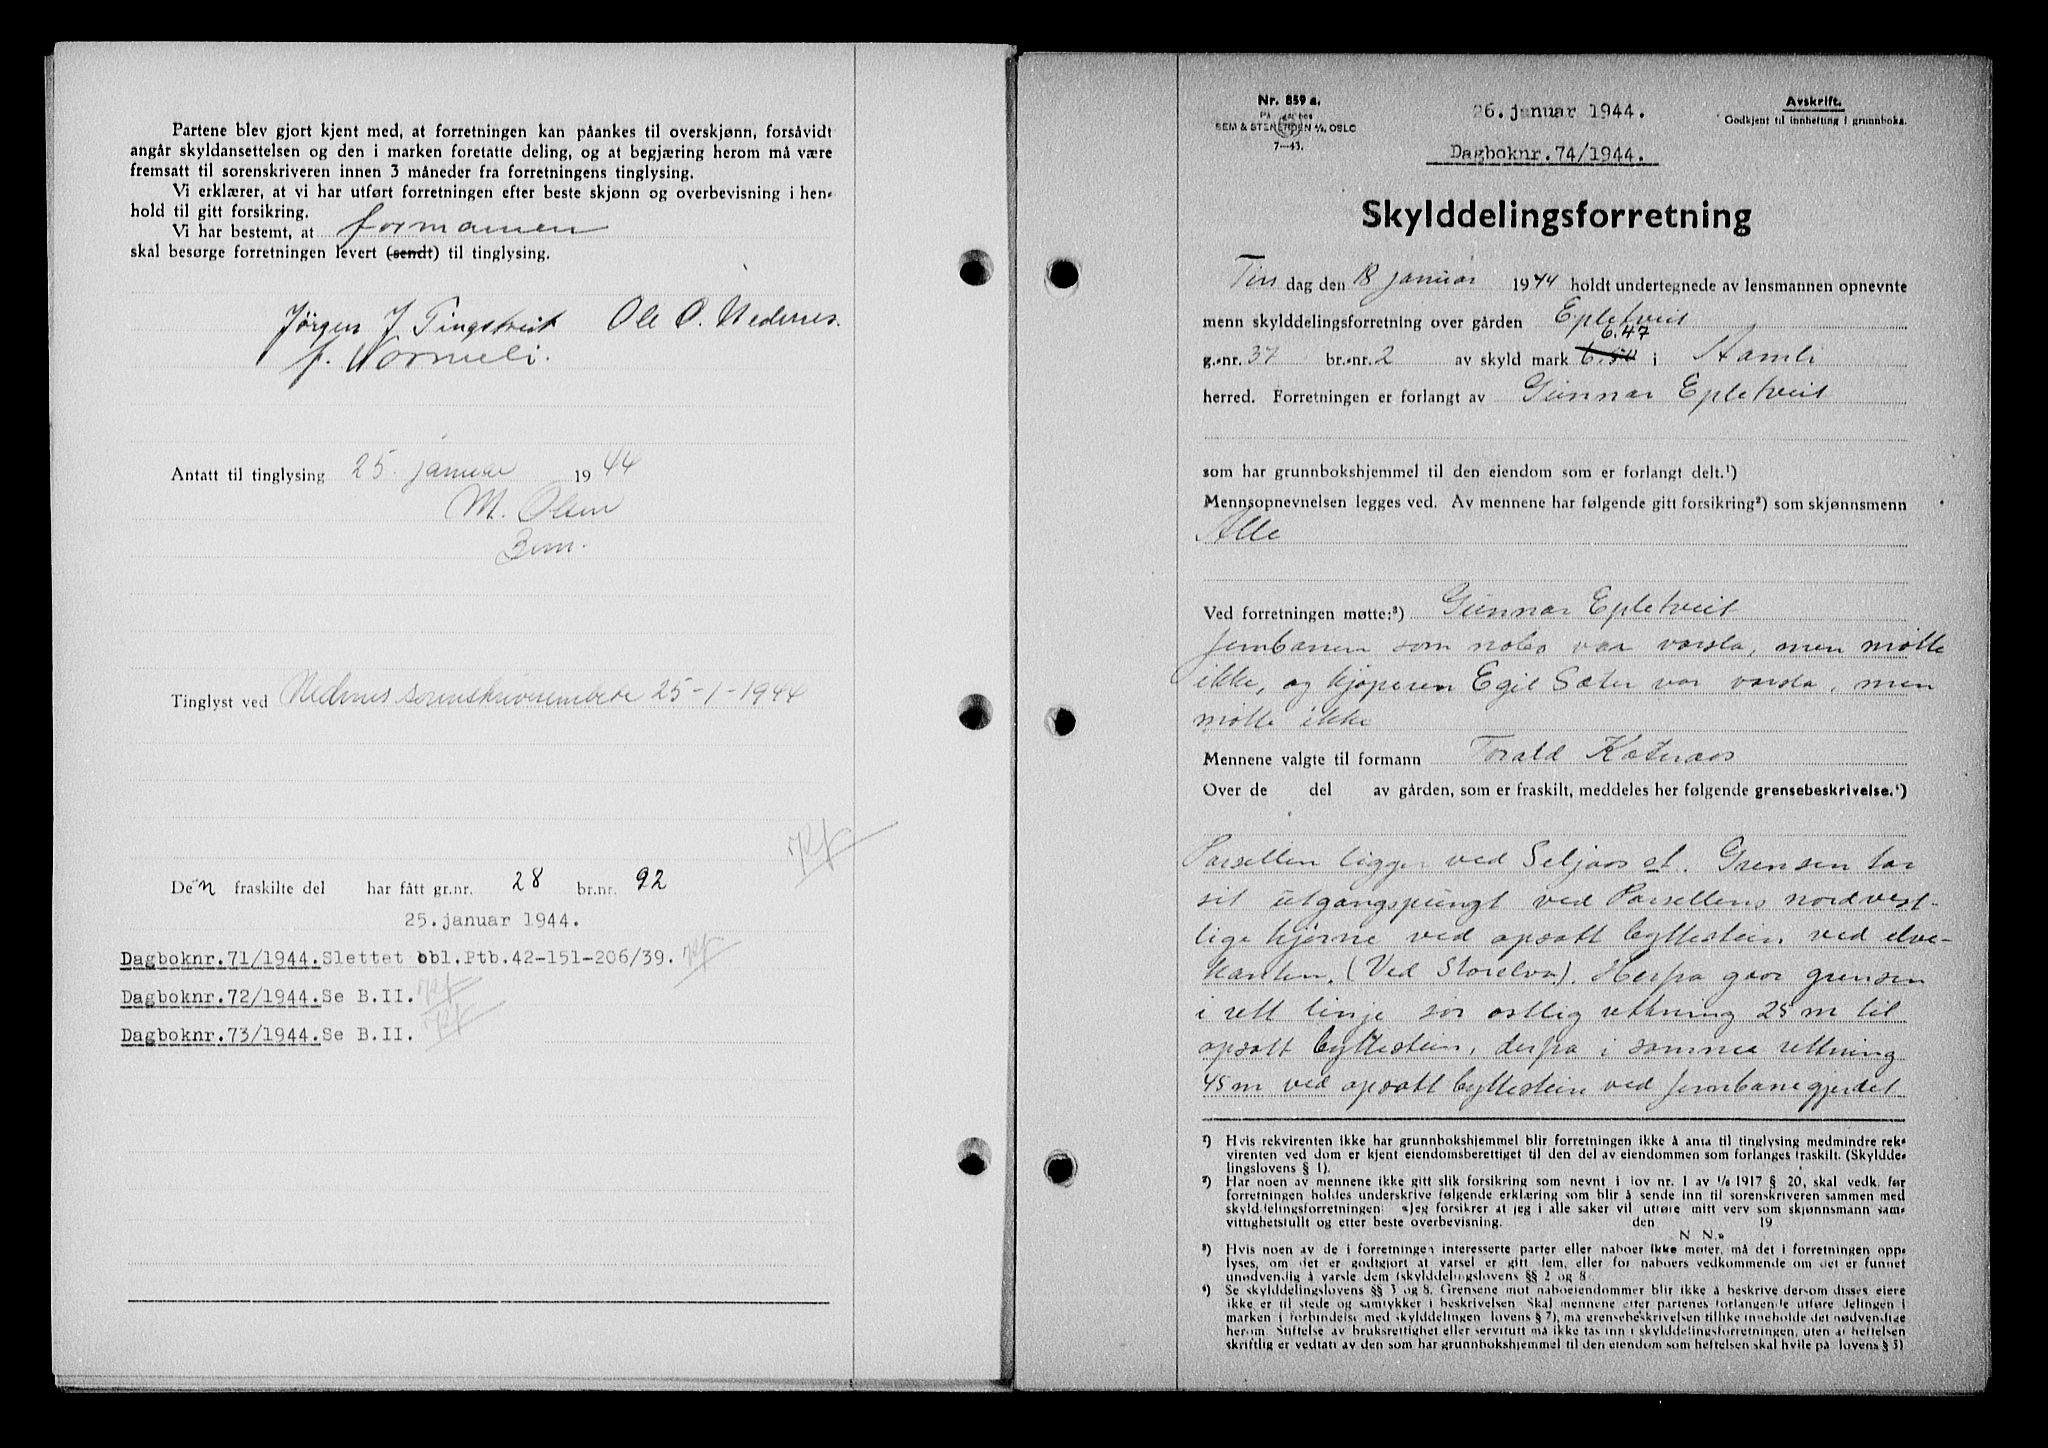 Partene blev gjort kjent med, at forretningen kan påankes til overskjønn, forsåvidt
angår skyldansettelsen og den i marken foretatte deling, og at begjæring herom må være
fremsatt til sorenskriveren innen 3 måneder fra forretningens tinglysing.
Vi erklærer, at vi har utført forretningen efter beste skjønn og overbevisning i hen-
hold til gitt forsikring.
Vi har bestemt, at formannen
skal besørge forretningen levert (sendt) til tinglysing.
Jørgen J Tingstveit Ole O. Nedenes.
Antatt til tinglysing 25. januar 1944
M. Olsen
Tinglyst ved Nedenes sorenskriverembede 25-1-1944
Den fraskilte del har fått gr.nr. 28 br.nr. 92
25.januar 1944.
Dagboknr.71/1944.Slettet obl.Ptb.42-151-206/39.
Dagboknr.72/1944.Se B.II.
Dagboknr.73/1944.Se B.II.
Nr. 859 a.
På lager hos
SEM & STENERSEN A/S, OSLO
7—43.
26. januar 1944.
Dagboknr.74/1944.
Avskrift.
Godkjent til innhefting i grunnboka.
Skylddelingsforretning
Tirsdag den 18 januar 1944 holdt undertegnede av lensmannen opnevnte
menn skylddelingsforretning over gården Epletveit
6.47
g.-nr. 37 br.-nr. 2 av skyld mark 6.50 i Aamli
herred. Forretningen er forlangt av Gunnar Epletveit
som har grunnbokshjemmel til den eiendom som er forlangt delt.¹)
Mennsopnevnelsen legges ved. Av mennene har følgende gitt forsikring²) som skjønnsmenn
Alle
Ved forretningen møtte:³) Gunnar Epletveit
Jernbanen som nabo var varsla, men møtte
ikke, og kjøperen Egil Sæter var varsla, men
møtte ikke
Mennene valgte til formann Torald Kateraas
Over de del av gården, som er fraskilt, meddeles her følgende grensebeskrivelse.⁴)
Parsellen ligger ved Seljaas st. Grensen tar
sit utgangspungt ved Parsellens nordvest-
lige hjørne ved opsatt byttestein ved elve-
kanten. (Ved Storelva). Herfra gaar grensen
i rett linje sør østlig rettning 25 m til
opsatt byttestein, derfra i samme rettning
45 m ved opsatt byttestein ved jernbanegjerdet
¹) Hvis rekvirenten ikke har grunnbokshjemmel blir forretningen ikke å anta til tinglysing medmindre rek-
virenten ved dom er kjent eiendomsberettiget til den del av eiendommen som forlanges fraskilt. (Skyldde-
lingslovens § 1).
²) Har noen av mennene ikke gitt slik forsikring som nevnt i lov nr. 1 av 1/6 1917 § 20, skal vedk. før
forretningen holdes underskrive følgende erklæring som blir å sende inn til sorenskriveren sammen med
skylddelingsforretningen: «Jeg forsikrer at jeg i alle saker vil utføre mitt verv som skjønnsmann sam-
vittighetsfullt og etter beste overbevisning. den 19
N. N.»
³) Hvis noen av de i forretningen interesserte parter eller naboer ikke møter, må det i forretningen opp-
lyses, om det er godtgjort at varsel er gitt dem, eller for naboers vedkommende om det er funnet
unødvendig å varsle dem (skylddelingslovens §§ 2 og 8
⁴) Se skylddelingslovens §§ 3 og 8. Grensene mot naboeiendommer blir ikke å beskrive dersom disses eiere
ikke er til stede og samtykker i beskrivelsen Skal mennene etter partenes forlangende utføre delingen i
marken i forbindelse med skylddelingen lovens § 7), må grensebeskrivelsen tillike inneholde det nødvendige
herom. Stiftelse av bruksrettighet eller servitutt må ikke tas inn i skylddelingsforretningen, uten at heftelsen
skriftlig er vedtatt av den som har grunnbokshjemmel til den eiendom som heftelsen skal hvile på lovens § 3)